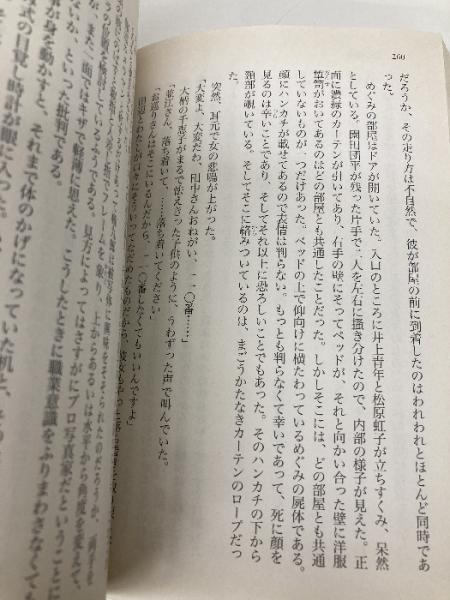 260
だろうか、その走り方は不自然で、彼が部屋の前に到着したのはわれわれとほとんど同時であ
った。
めぐみの部屋はドアが開いていた。入口のところに井上青年と松原虹子が立ちすくみ、呆然
としている。園田団平が残った片手で二人を左右に掻き分けたので、内部の様子が見えた。正
面に濃緑のカーテンが引いてあり、右手の壁にそってベッドが、それと向かい合った壁に洋服
簞笥がおいてあるのはどの部屋とも共通したことだった。しかしそこには、どの部屋とも共通
していないものが一つだけあった。ベッドの上で仰向けに横たわっているめぐみの屍体である。
顔にハンカチが載せてあるので表情は判らない。もっとも判らなくて幸いであって、死に顔を
見るのは辛いことであり、そしてそれ以上に恐ろしいことでもあった。そのハンカチの下から
頸部が覗いている。そしてそこに絡みついているのは、まごうかたなきカーテンのロープだっ
た。
突然、耳元で女の悲鳴が上がった。
「大変よ、大変だわ、田中さんおねがい、一一〇番……」
大柄の千恵子がまるで怯えきった子供のように、うわずった声で叫んでいた。
落ち着いて、……落ち着いてください」
「お巡りさんはそこにいるんだから、一一〇番しなくてもいいんですよ」
上からあるいは水平から
が、また一面ではキザで軽薄に思えた。こうしたときに職業意識をふりまわさなくても
ないか、という批判である。
が身を動かすと、それまで体のかげになっていた机と、その
式の目覚し時計が眼に入った。